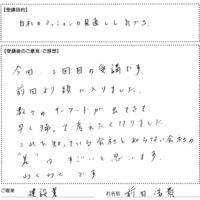 【受講目的】
自社のマッションの見直しし
【受講後のご意見・ご感想】
今回、2回目の受講です。
前回より頭に入りました。
数々のキーワードが出てきて、
早く帰って考えたくなりました。
これを知っている会社と知らない会社の
"差"はすごいと思います。
わくわくです。
ご職業 建設業 お名前 前田